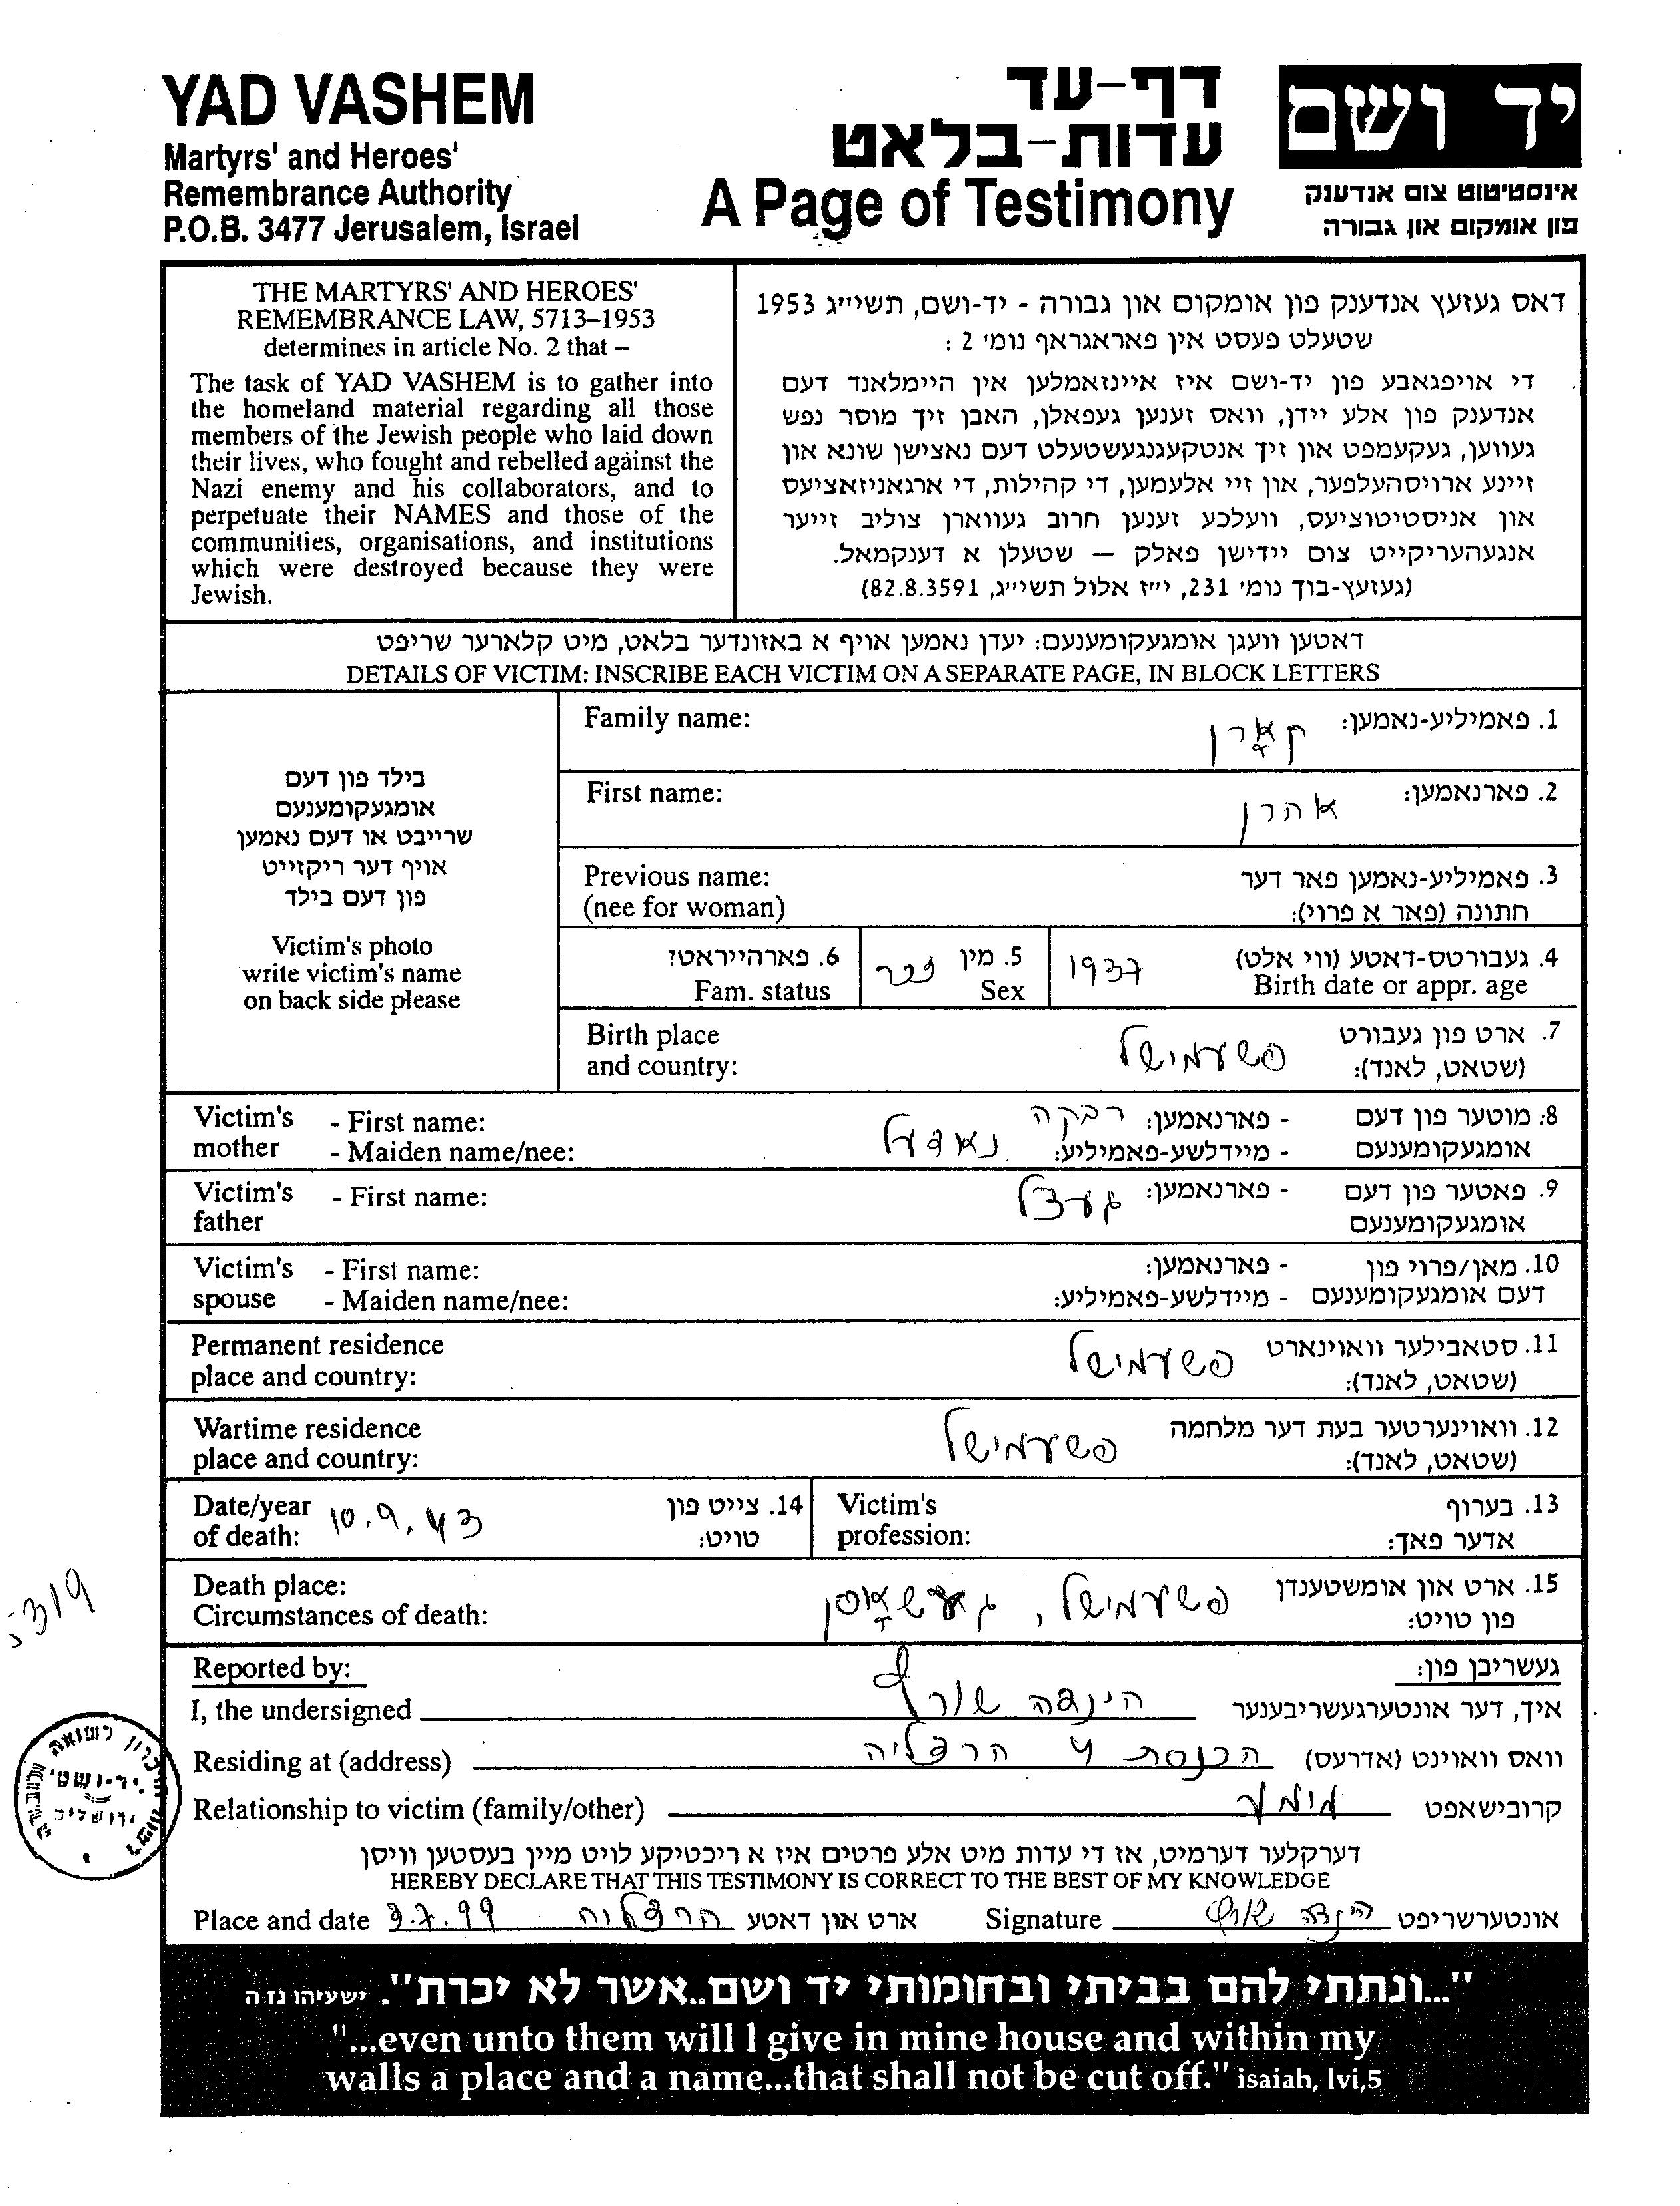 YAD VASHEM
Martyrs' and Heroes'
Remembrance Authority
P.O.B. 3477 Jerusalem, Israel
דף-עד
עדות-בלאט
A Page of Testimony
יד ושם
אינסטיטוט צום אנדענק
פון אומקום און גבורה
THE MARTYRS' AND HEROES'
REMEMBRANCE LAW, 5713–1953
determines in article No. 2 that –
The task of YAD VASHEM is to gather into
the homeland material regarding all those
members of the Jewish people who laid down
their lives, who fought and rebelled against the
Nazi enemy and his collaborators, and to
perpetuate their NAMES and those of the
communities, organisations, and institutions
which were destroyed because they were
Jewish.
דאס געזעץ אנדענק פון אומקום און גבורה - יד-ושם, תשי״ג 1953
שטעלט פעסט אין פאראגראף נומ׳ 2 :
די אויפגאבע פון יד-ושם איז איינזאמלען אין היימלאנד דעם
אנדענק פון אלע יידן, וואס זענען געפאלן, האבן זיך מוסר נפש
געווען, געקעמפט און זיך אנטקעגנגעשטעלט דעם נאצישן שונא און
זיינע ארויסהעלפער, און זיי אלעמען, די קהילות, די ארגאניזאציעס
און אניסטיטוציעס, וועלכע זענען חרוב געווארן צוליב זייער
אנגעהעריקייט צום יידישן פאלק – שטעלן א דענקמאל.
(געזעץ-בוך נומ׳ 231, י״ז אלול תשי״ג, 82.8.3591)
דאטען וועגן אומגעקומענעם: יעדן נאמען אויף א באזונדער בלאט, מיט קלארער שריפט
DETAILS OF VICTIM: INSCRIBE EACH VICTIM ON A SEPARATE PAGE, IN BLOCK LETTERS
בילד פון דעם
אומגעקומענעם
שרייבט או דעם נאמען
אויף דער ריקזייט
פון דעם בילד
Victim's photo
write victim's name
on back side please
Family name: קאָרן 1. פאמיליע-נאמען:
First name: אהרן 2. פארנאמען:
Previous name: 3. פאמיליע-נאמען פאר דער
(nee for woman) חתונה (פאר א פרוי):
6. פארהייראט? 5. מין זכר 4. געבורטס-דאטע (ווי אלט) 1937
Fam. status Sex Birth date or appr. age
Birth place 7. ארט פון געבורט
and country: פשעמישל (שטאט, לאנד):
Victim's - First name: רבקה - פארנאמען: 8. מוטער פון דעם
mother - Maiden name/nee: נאדעל - מיידלשע-פאמיליע: אומגעקומענעם
Victim's - First name: געצל - פארנאמען: 9. פאטער פון דעם
father אומגעקומענעם
Victim's - First name: - פארנאמען: 10. מאן/פרוי פון
spouse - Maiden name/nee: - מיידלשע-פאמיליע: דעם אומגעקומענעם
Permanent residence 11. סטאבילער וואוינארט
place and country: פשעמישל (שטאט, לאנד):
Wartime residence 12. וואוינערטער בעת דער מלחמה
place and country: פשעמישל (שטאט, לאנד):
Date/year 10.9.43 14. צייט פון Victim's 13. בערוף
of death: טויט: profession: אדער פאך:
Death place: 15. ארט און אומשטענדן
Circumstances of death: פשעמישל, געשאָסן פון טויט:
5319
Reported by: געשריבן פון:
I, the undersigned הינדה שורף איך, דער אונטערגעשריבענער
Residing at (address) הכנסת 4 הרצליה וואס וואוינט (אדרעס)
Relationship to victim (family/other) קרובישאפט
ירושלים
דערקלער דערמיט, אז די עדות מיט אלע פרטים איז א ריכטיקע לויט מיין בעסטען וויסן
HEREBY DECLARE THAT THIS TESTIMONY IS CORRECT TO THE BEST OF MY KNOWLEDGE
Place and date 9.7.99 הרצליה ארט און דאטע Signature הינדה שורף אונטערשריפט
"...ונתתי להם בביתי ובחומותי יד ושם..אשר לא יכרת". ישעיהו נז ה
"...even unto them will I give in mine house and within my
walls a place and a name...that shall not be cut off." isaiah, lvi,5